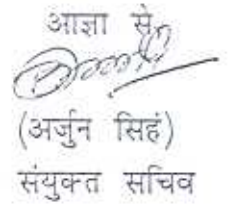 आज्ञा से
(अर्जुन सिहं)
संयुक्त सचिव